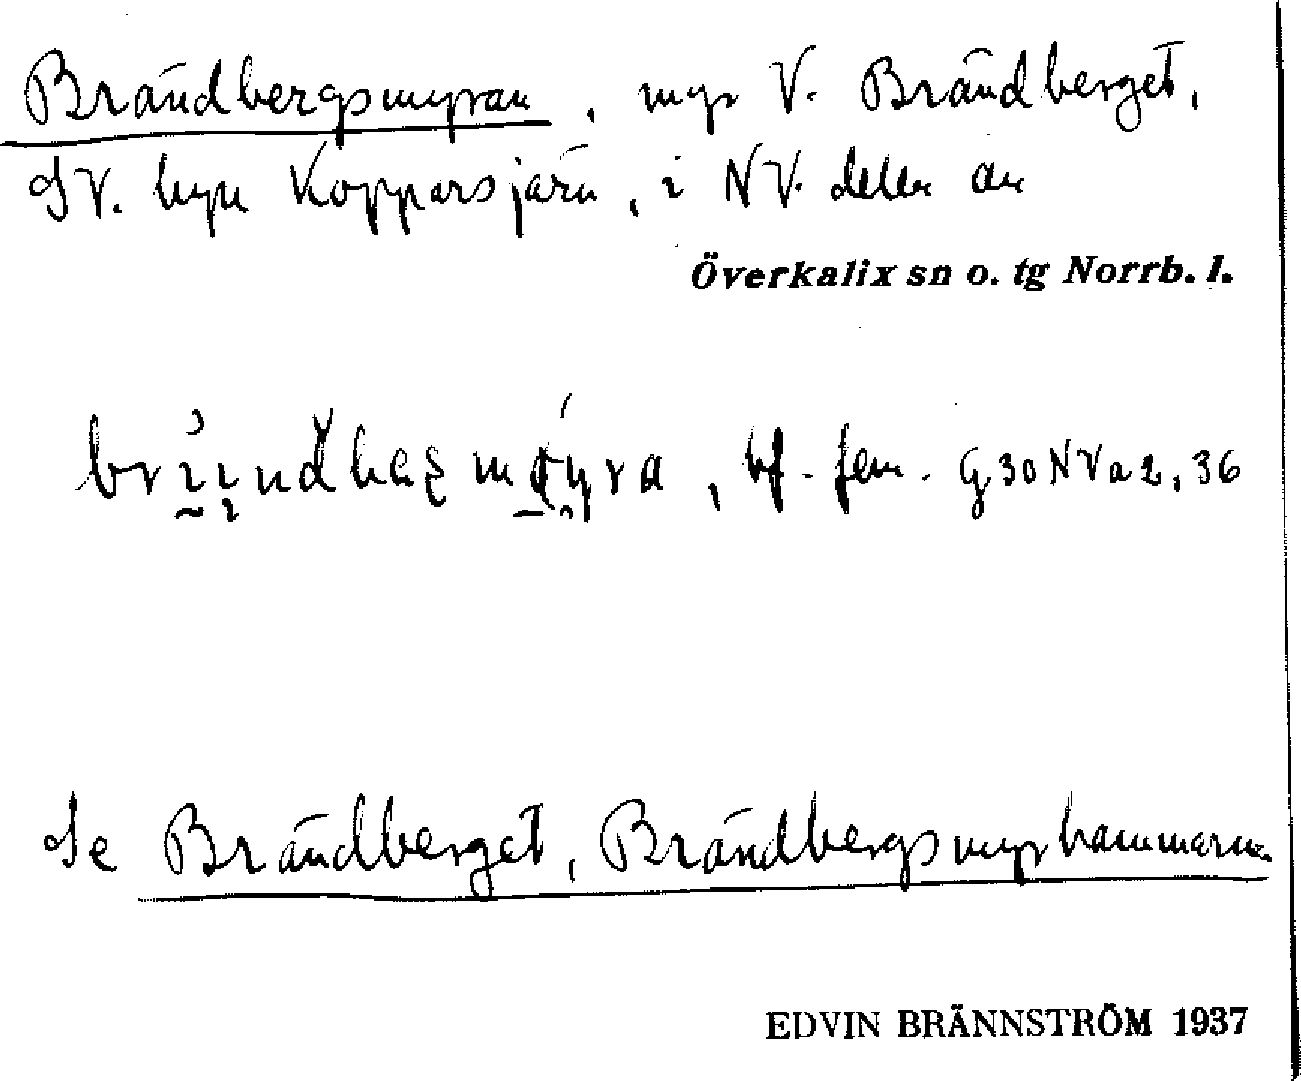 Brändbergsmyran, myr V. Brändberget,
SV. byn Kopparsjärn, i NV. delen av
Överkalix sn o. tg Norrb. l.
, bf. fem. G 30 NV a 2, 36
Se Brändberget, Brändbergsmyrhammarna
EDVIN BRÄNNSTRÖM 1937